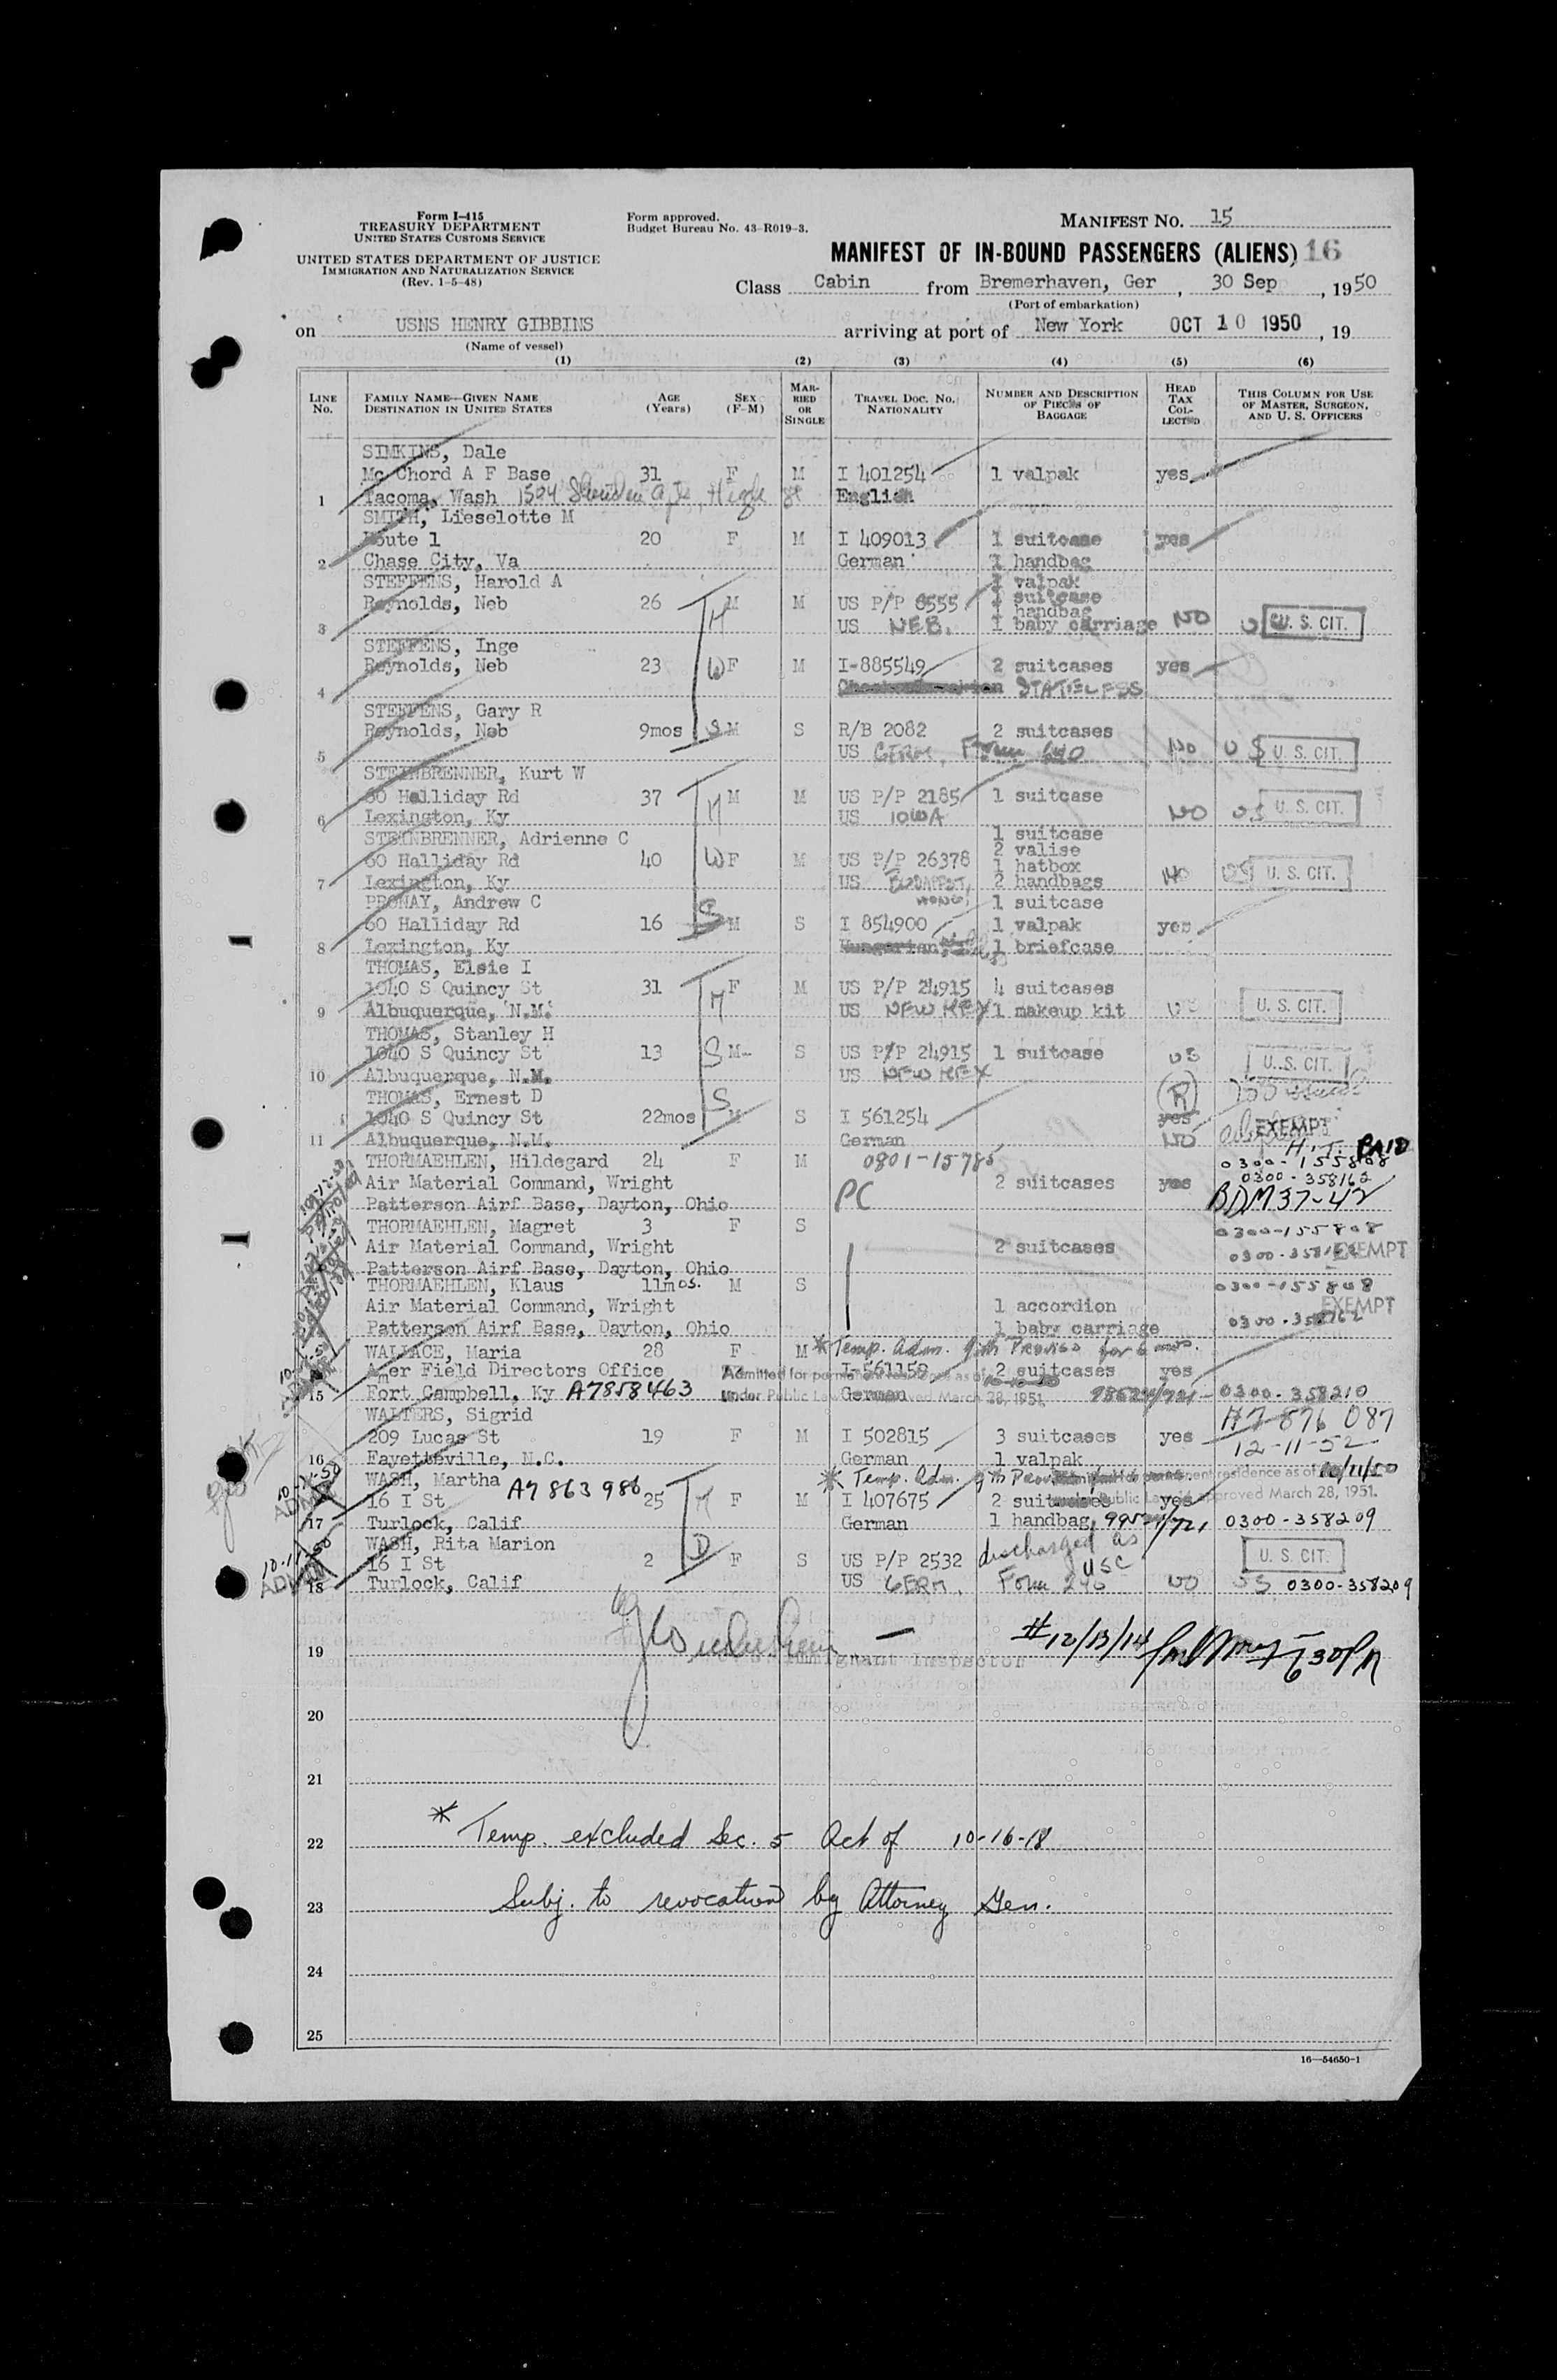 Form I-415
TREASURY DEPARTMENT
UNITED STATES CUSTOMS SERVICE
UNITED STATES DEPARTMENT OF JUSTICE
IMMIGRATION AND NATURALIZATION SERVICE
(Rev. 1-5-48)
Form approved.
Budget Bureau No. 43-R019-3.
MANIFEST NO. 15
MANIFEST OF IN-BOUND PASSENGERS (ALIENS) 16
Class Cabin from Bremerhaven, Ger, 30 Sep, 1950
(Port of embarkation)
on USNS HENRY GIBBINS arriving at port of New York OCT 10 1950, 19
(Name of vessel)
(1) (2) (3) (4) (5) (6)
LINE No.
FAMILY NAME—GIVEN NAME
DESTINATION IN UNITED STATES
AGE (Years)
SEX (F-M)
MARRIED OR SINGLE
TRAVEL DOC. NO. NATIONALITY
NUMBER AND DESCRIPTION OF PIECES OF BAGGAGE
HEAD TAX COLLECTED
THIS COLUMN FOR USE OF MASTER, SURGEON, AND U. S. OFFICERS
SIMKINS, Dale
Mc Chord A F Base 31 F M I 401254 1 valpak yes
1 Tacoma, Wash 1524 English
SMITH, Lieselotte M
Route 1 20 F M I 409013 1 suitcase yes
2 Chase City, Va German 1 handbag
STEFFENS, Harold A 1 valpak
Reynolds, Neb 26 M M US P/P 8555 1 suitcase
1 handbag
3 H US NEB. 1 baby carriage NO U. S. CIT.
STEFFENS, Inge
Reynolds, Neb 23 W F M I-885549 2 suitcases yes
4 STATELESS
STEFFENS, Gary R
Reynolds, Neb 9mos S M S R/B 2082 2 suitcases
5 US GERM. Form 240 NO US U. S. CIT.
STEINBRENNER, Kurt W
60 Halliday Rd 37 H M M US P/P 2185 1 suitcase
6 Lexington, Ky US IOWA NO US U. S. CIT.
STEINBRENNER, Adrienne C 1 suitcase
2 valise
60 Halliday Rd 40 W F M US P/P 26378 1 hatbox
7 Lexington, Ky US BUDAPEST, 2 handbags NO US U. S. CIT.
PRONAY, Andrew C 1 suitcase
60 Halliday Rd 16 S M S I 854900 1 valpak yes
8 Lexington, Ky Hungarian 1 briefcase
THOMAS, Elsie I
1040 S Quincy St 31 F M US P/P 24915 4 suitcases
9 Albuquerque, N.M. M US NEW MEX 1 makeup kit U. S. CIT.
THOMAS, Stanley H
1040 S Quincy St 13 S M- S US P/P 24915 1 suitcase US U. S. CIT.
10 Albuquerque, N.M. US NEW MEX
THOMAS, Ernest D S (R)
1040 S Quincy St 22mos M S I 561254 yes EXEMPT
11 Albuquerque, N.M. German NO
H. T. PAID
THORMAEHLEN, Hildegard 24 F M 0801-15785 0300-155808
Air Material Command, Wright 2 suitcases yes 0300-358162
Patterson Airf Base, Dayton, Ohio PC BDM 37-42
THORMAEHLEN, Magret 3 F S 0300-155808
Air Material Command, Wright 2 suitcases 0300-358162 EXEMPT
Patterson Airf Base, Dayton, Ohio
THORMAEHLEN, Klaus 11mos. M S 0300-155808
Air Material Command, Wright 1 accordion EXEMPT
Patterson Airf Base, Dayton, Ohio 1 baby carriage 0300-358162
WALLACE, Maria 28 F M * Temp. Adm. 9th Proviso for 6 mos.
Amer Field Directors Office I-561159 2 suitcases yes
Admitted for permanent residence as of 10-10-50
15 Fort Campbell, Ky A7858463 German 0300-358210
under Public Law approved March 28, 1951.
WALTERS, Sigrid A7 876 087
209 Lucas St 19 F M I 502815 3 suitcases yes 12-11-52
16 Fayetteville, N.C. German 1 valpak
WASH, Martha A7 863 986 * Temp. Adm. 9th Proviso permanent residence as of 10/11/50
16 I St 25 M F M I 407675 2 suitcases yes Public Law approved March 28, 1951.
17 Turlock, Calif German 1 handbag 0300-358209
WASH, Rita Marion discharged as USC
16 I St 2 D F S US P/P 2532 U. S. CIT.
18 Turlock, Calif US GERM. Form 240 NO US 0300-358209
19 Immigrant Inspector #12/13/14 630PM
20
21
22 * Temp. excluded Sec. 5 Act of 10-16-18
23 Subj. to revocation by Attorney Gen.
24
25
16—54650-1